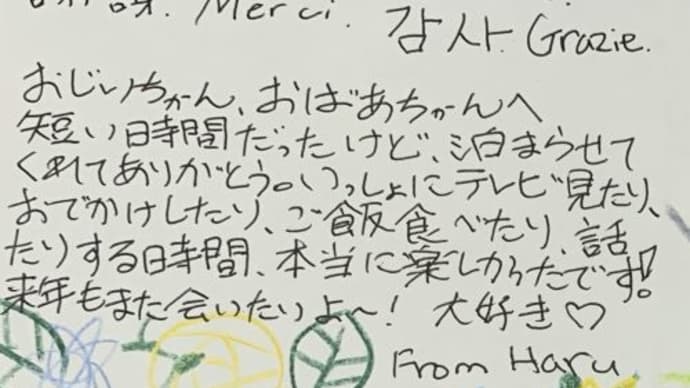 Merci.
감사. Grazie.
おじいちゃん、おばあちゃんへ
短い時間だったけど、泊まらせて
くれてありがとう。いっしょにテレビ見たり、
おでかけしたり、ご飯食べたり、話
たりする時間、本当に楽しかったです!
来年もまた会いたいよ〜! 大好き♡
From Haru